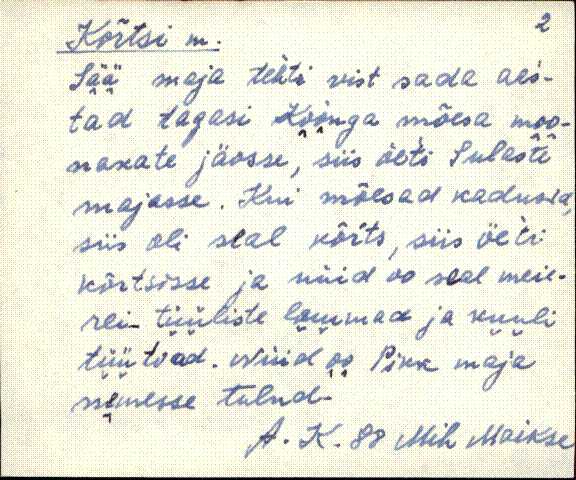 2
Kõrtsi m.
Sää maja tehti vist sada aes-
tad tagasi Koonga mõesa moo-
nakate jäosse, siis öeti Sulaste
majasse. Kui mõesad kadusid,
siis oli seal kõrts, siis öeti
kõrtsisse ja nüid oo seal meie-
rei- tüüliste lommad ja kuuli
tüütvad. Nüid oo Pikk maja
nemesse tulnd-
A. K. 88 Mih Maikse